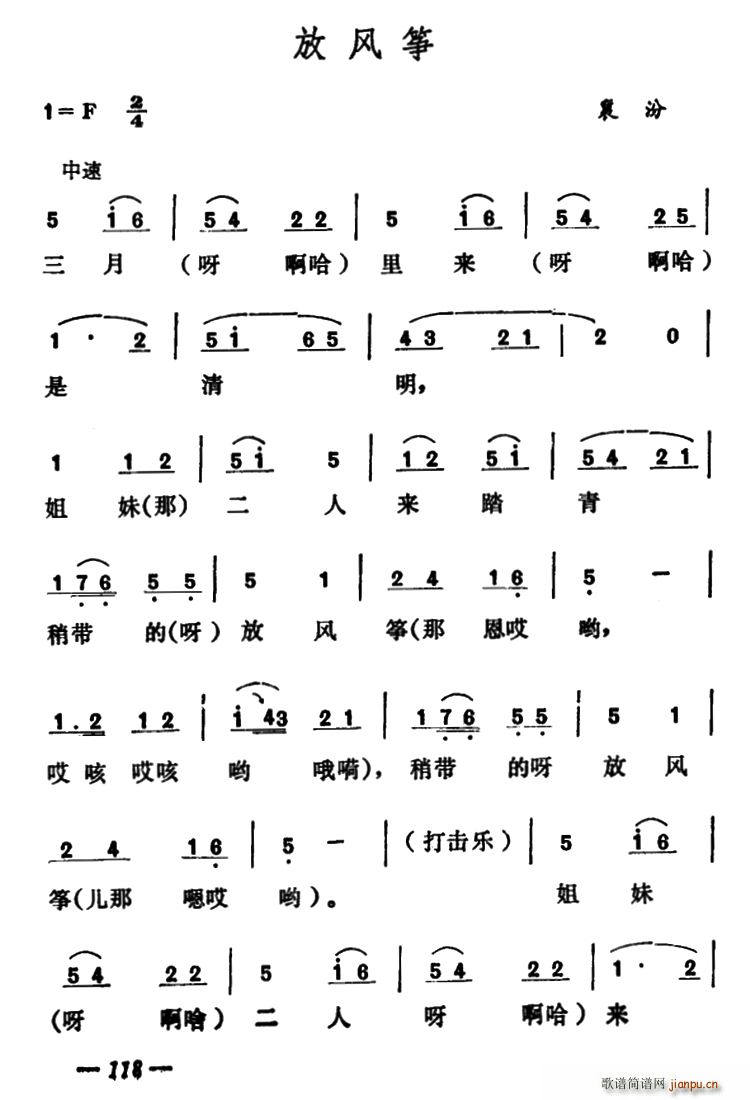 放风筝
1=F 2/4 襄汾
中速
5 i6 | 54 22 | 5 i6 | 54 25 |
三月(呀 啊哈)里来(呀 啊哈)
1· 2 | 5i 65 | 43 21 | 2 0 |
是 清 明,
1 12 | 5i 5 | 12 5i | 54 21 |
姐 妹(那) 二 人 来 踏 青
176 55 | 5 1 | 24 16 | 5 — |
稍带 的(呀) 放 风 筝(那 恩哎 哟,
1.2 12 | i 43 21 | 176 55 | 5 1 |
哎咳 哎咳 哟 哦嗬), 稍带 的呀 放 风
24 16 | 5 — | (打击乐) | 5 i6 |
筝(儿那 嗯哎 哟)。 姐 妹
54 22 | 5 i6 | 54 22 | 1· 2 |
(呀 啊哈) 二 人 呀 啊哈) 来
— 118 —
歌谱简谱网 jianpu.cn